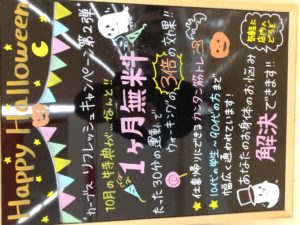 Happy Halloween
カーブス リフレッシュキャンペーン第2弾
10月の特典が、なんと!!
1ヶ月無料!
たった30分の運動で
ウォーキングの3倍の効果!!
★仕事帰りにできるカンタン筋トレ
★10代の学生~90代の方まで
幅広く通われています!
あなたのお身体のお悩み
解決できます!!